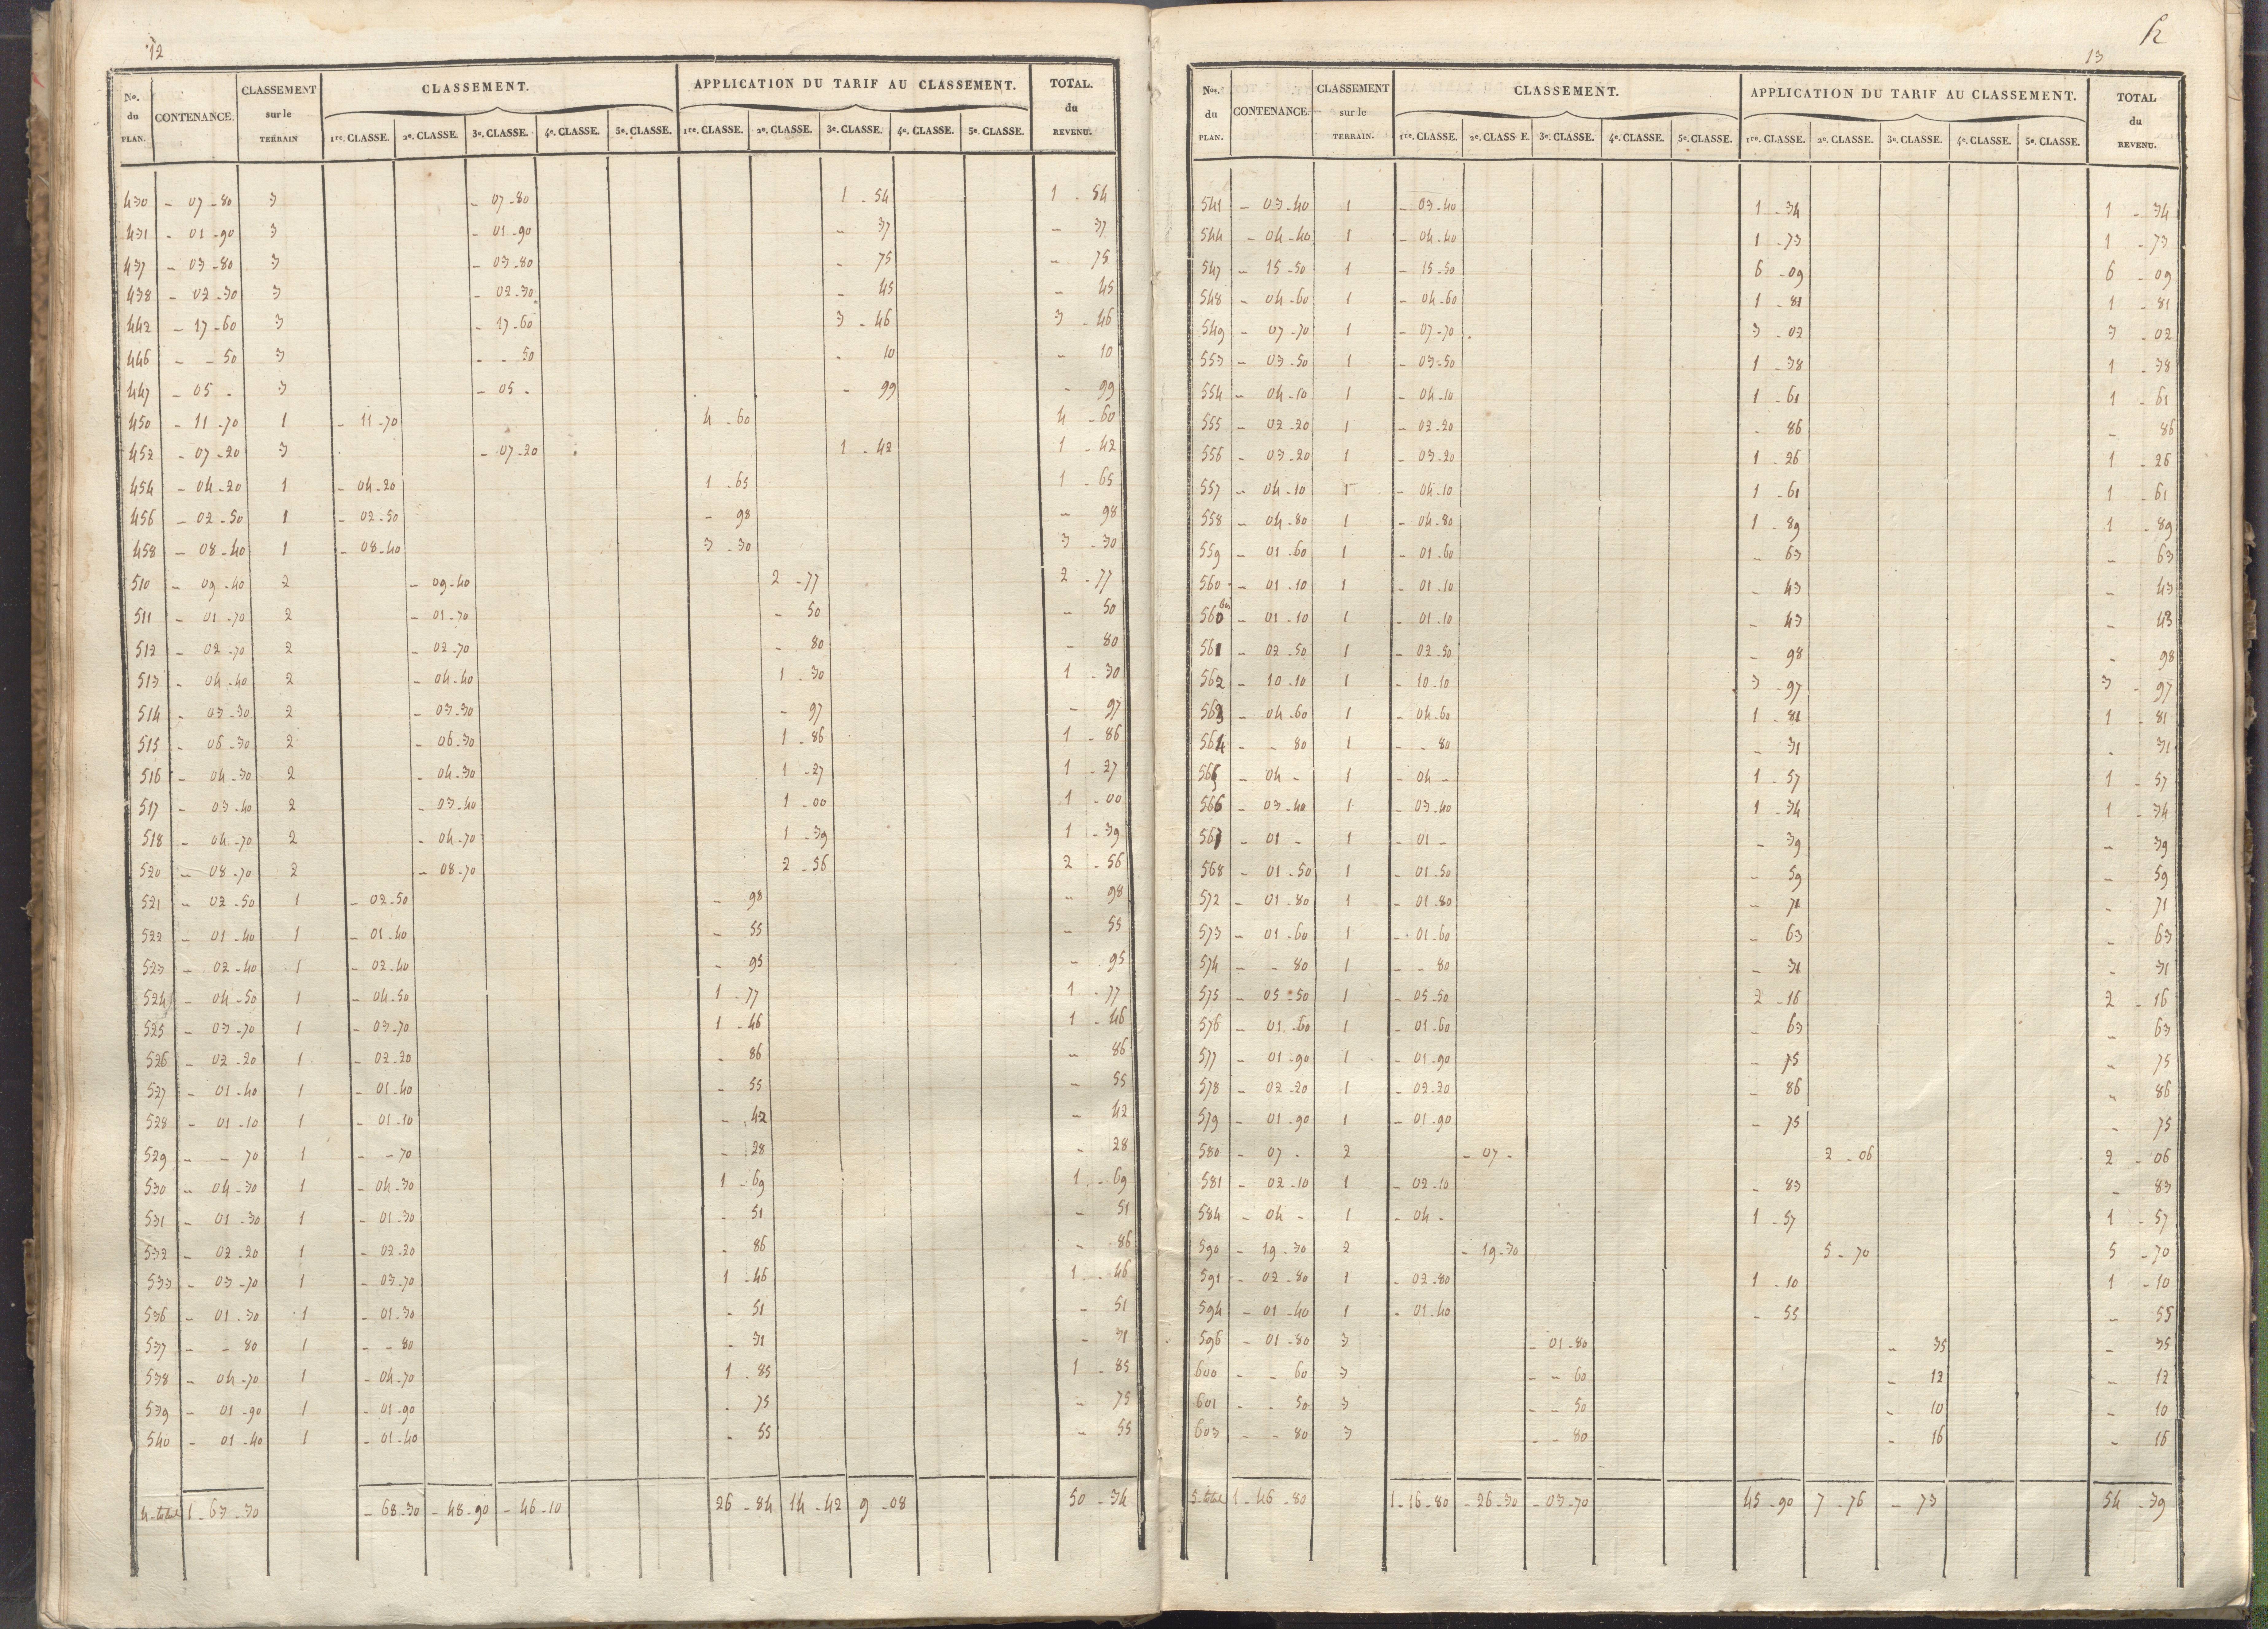 12
No. du PLAN. CONTENANCE. CLASSEMENT sur le TERRAIN CLASSEMENT. APPLICATION DU TARIF AU CLASSEMENT. TOTAL. du REVENU.
1re. CLASSE. 2e. CLASSE. 3e. CLASSE. 4e. CLASSE. 5e. CLASSE. 1re. CLASSE. 2e. CLASSE. 3e. CLASSE. 4e. CLASSE. 5e. CLASSE.
430 - 07-80 3 - 07-80 1 - 54 1 - 54
431 - 01-90 3 - 01-90 - 37 - 37
437 - 03-80 3 - 03-80 - 75 - 75
438 - 02-30 3 - 02-30 - 45 - 45
442 - 17-60 3 - 17-60 3 - 46 3 - 46
446 - - 50 3 - - 50 - 10 - 10
447 - 05 - 3 - 05 - - 99 - 99
450 - 11-70 1 - 11-70 4 - 60 4 - 60
452 - 07-20 3 - 07-20 1 - 42 1 - 42
454 - 04-20 1 - 04-20 1 - 65 1 - 65
456 - 02-50 1 - 02-50 - 98 - 98
458 - 08-40 1 - 08-40 3 - 30 3 - 30
510 - 09-40 2 - 09-40 2 - 77 2 - 77
511 - 01-70 2 - 01-70 - 50 - 50
512 - 02-70 2 - 02-70 - 80 - 80
513 - 04-40 2 - 04-40 1 - 30 1 - 30
514 - 03-30 2 - 03-30 - 97 - 97
515 - 06-30 2 - 06-30 1 - 86 1 - 86
516 - 04-30 2 - 04-30 1 - 27 1 - 27
517 - 03-40 2 - 03-40 1 - 00 1 - 00
518 - 04-70 2 - 04-70 1 - 39 1 - 39
520 - 08-70 2 - 08-70 2 - 56 2 - 56
521 - 02-50 1 - 02-50 - 98 - 98
522 - 01-40 1 - 01-40 - 55 - 55
523 - 02-40 1 - 02-40 - 95 - 95
524 - 04-50 1 - 04-50 1 - 77 1 - 77
525 - 03-70 1 - 03-70 1 - 46 1 - 46
526 - 02-20 1 - 02-20 - 86 - 86
527 - 01-40 1 - 01-40 - 55 - 55
528 - 01-10 1 - 01-10 - 42 - 42
529 - - 70 1 - - 70 - 28 - 28
530 - 04-30 1 - 04-30 1 - 69 1 - 69
531 - 01-30 1 - 01-30 - 51 - 51
532 - 02-20 1 - 02-20 - 86 - 86
533 - 03-70 1 - 03-70 1 - 46 1 - 46
536 - 01-30 1 - 01-30 - 51 - 51
537 - - 80 1 - - 80 - 31 - 31
538 - 04-70 1 - 04-70 1 - 85 1 - 85
539 - 01-90 1 - 01-90 - 75 - 75
540 - 01-40 1 - 01-40 - 55 - 55
4 total 1-63-30 - 68-30 - 48-90 - 46-10 26-84 14-42 9-08 50-34
13
Nos. du PLAN. CONTENANCE. CLASSEMENT sur le TERRAIN. CLASSEMENT. APPLICATION DU TARIF AU CLASSEMENT. TOTAL du REVENU.
1re. CLASSE. 2e. CLASS E. 3e. CLASSE. 4e. CLASSE. 5e. CLASSE. 1re. CLASSE. 2e. CLASSE. 3e. CLASSE. 4e. CLASSE. 5e. CLASSE.
541 - 03-40 1 - 03-40 1 - 34 1 - 34
544 - 04-40 1 - 04-40 1 - 73 1 - 73
547 - 15-50 1 - 15-50 6 - 09 6 - 09
548 - 04-60 1 - 04-60 1 - 81 1 - 81
549 - 07-70 1 - 07-70 3 - 02 3 - 02
553 - 03-50 1 - 03-50 1 - 38 1 - 38
554 - 04-10 1 - 04-10 1 - 61 1 - 61
555 - 02-20 1 - 02-20 - 86 - 86
556 - 03-20 1 - 03-20 1 - 26 1 - 26
557 - 04-10 1 - 04-10 1 - 61 1 - 61
558 - 04-80 1 - 04-80 1 - 89 1 - 89
559 - 01-60 1 - 01-60 - 63 - 63
560 - 01-10 1 - 01-10 - 43 - 43
560 bis - 01-10 1 - 01-10 - 43 - 43
561 - 02-50 1 - 02-50 - 98 - 98
562 - 10-10 1 - 10-10 3 - 97 3 - 97
563 - 04-60 1 - 04-60 1 - 81 1 - 81
564 - - 80 1 - - 80 - 31 - 31
565 - 04 - 1 - 04 - 1 - 57 1 - 57
566 - 03-40 1 - 03-40 1 - 34 1 - 34
567 - 01 - 1 - 01 - - 39 - 39
568 - 01-50 1 - 01-50 - 59 - 59
572 - 01-80 1 - 01-80 - 71 - 71
573 - 01-60 1 - 01-60 - 63 - 63
574 - - 80 1 - - 80 - 31 - 31
575 - 05-50 1 - 05-50 2 - 16 2 - 16
576 - 01-60 1 - 01-60 - 63 - 63
577 - 01-90 1 - 01-90 - 75 - 75
578 - 02-20 1 - 02-20 - 86 - 86
579 - 01-90 1 - 01-90 - 75 - 75
580 - 07 - 2 - 07 - 2 - 06 2 - 06
581 - 02-10 1 - 02-10 - 83 - 83
584 - 04 - 1 - 04 - 1 - 57 1 - 57
590 - 19-30 2 - 19-30 5 - 70 5 - 70
591 - 02-80 1 - 02-80 1 - 10 1 - 10
594 - 01-40 1 - 01-40 - 55 - 55
596 - 01-80 3 - 01-80 - 35 - 35
600 - - 60 3 - - 60 - 12 - 12
601 - - 50 3 - - 50 - 10 - 10
603 - - 80 3 - - 80 - 16 - 16
5 total 1-46-80 1-16-80 - 26-30 - 03-70 45-90 7-76 - 73 54-39